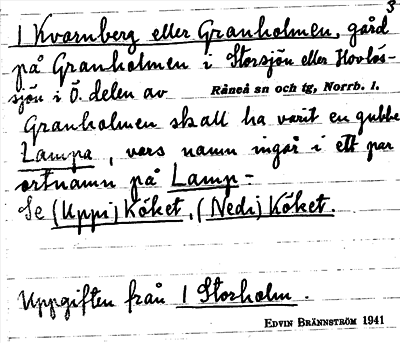 3
1 Kvarnberg eller Granholmen, gård
på Granholmen i Storsjön eller Hovlös-
sjön i Ö. delen av Råneå sn och tg, Norrb. l.
Granholmen skall ha varit en gubbe
Lampa, vars namn ingår i ett par
ortnamn på Lamp-
Se (Uppi) Köket, (Nedi) Köket.
Uppgiften från 1 Storholm.
EDVIN BRÄNNSTRÖM 1941